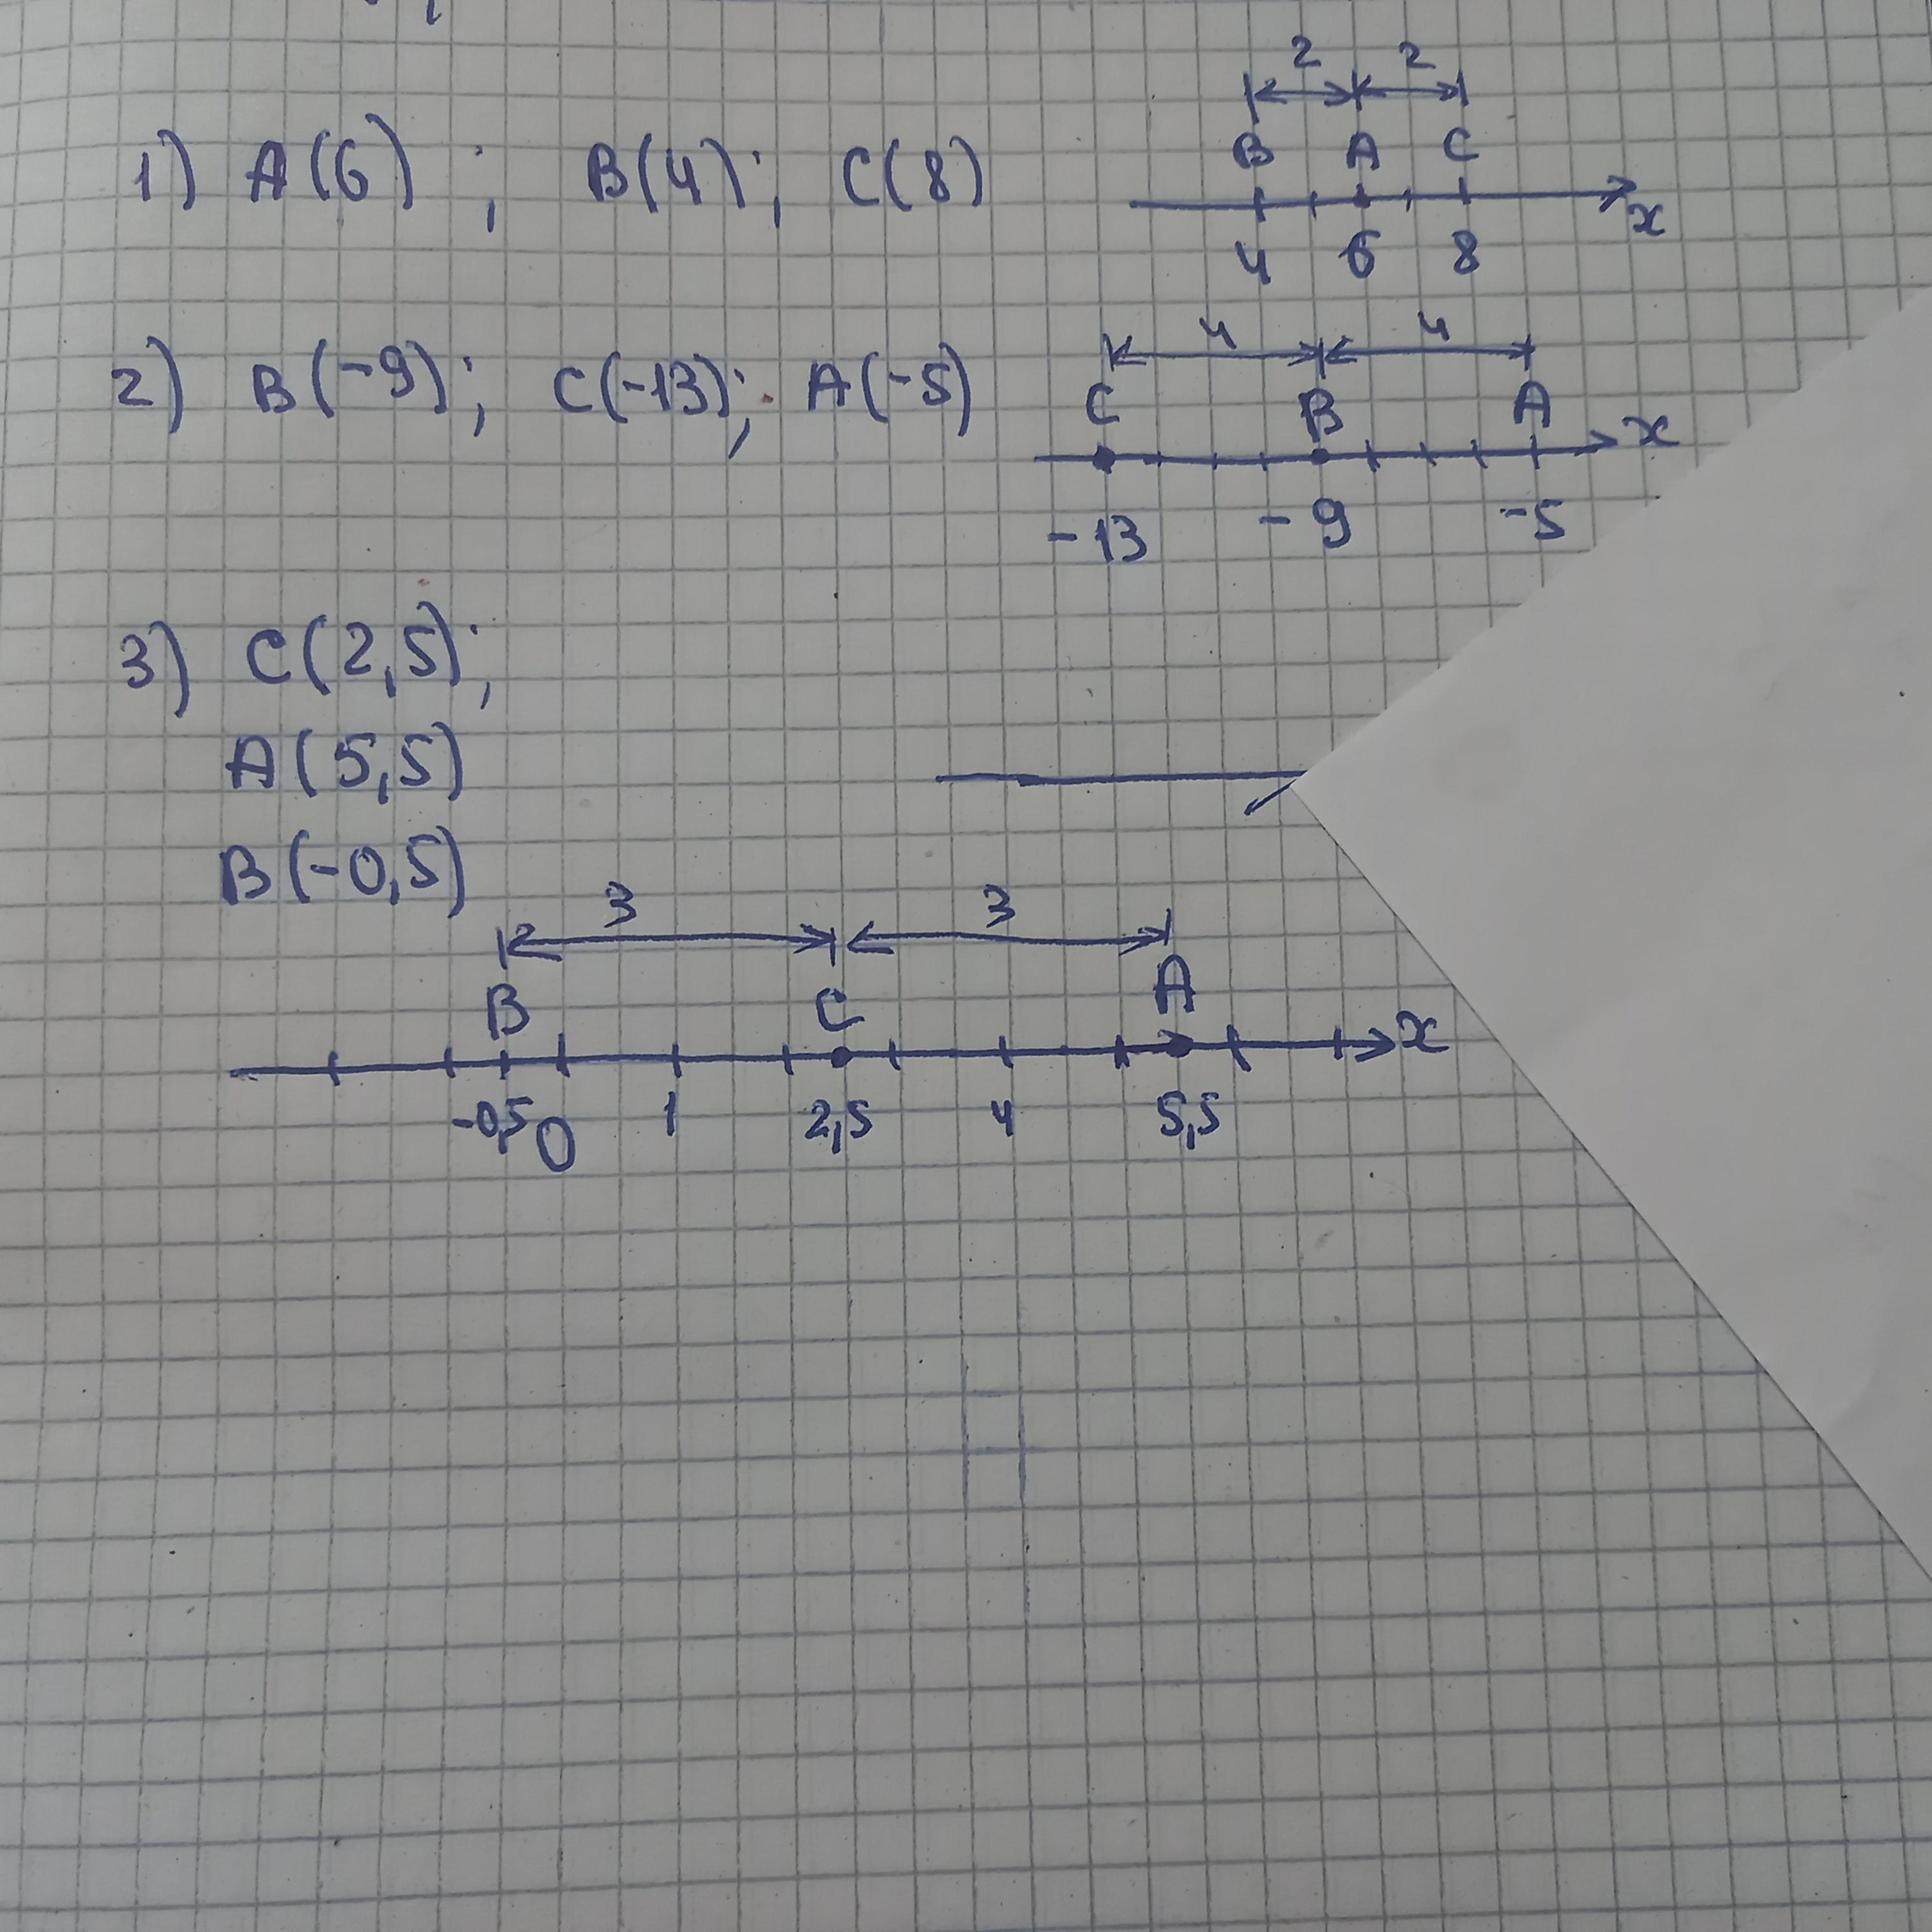 2 2
B A C
1) A(6) ; B(4); C(8)
x
4 6 8
4 4
2) B(-9); C(-13); A(-5)
C B A
x
-13 -9 -5
3) C(2,5);
A(5,5)
B(-0,5)
3 3
B C A
x
-0,5 0 1 2,5 4 5,5